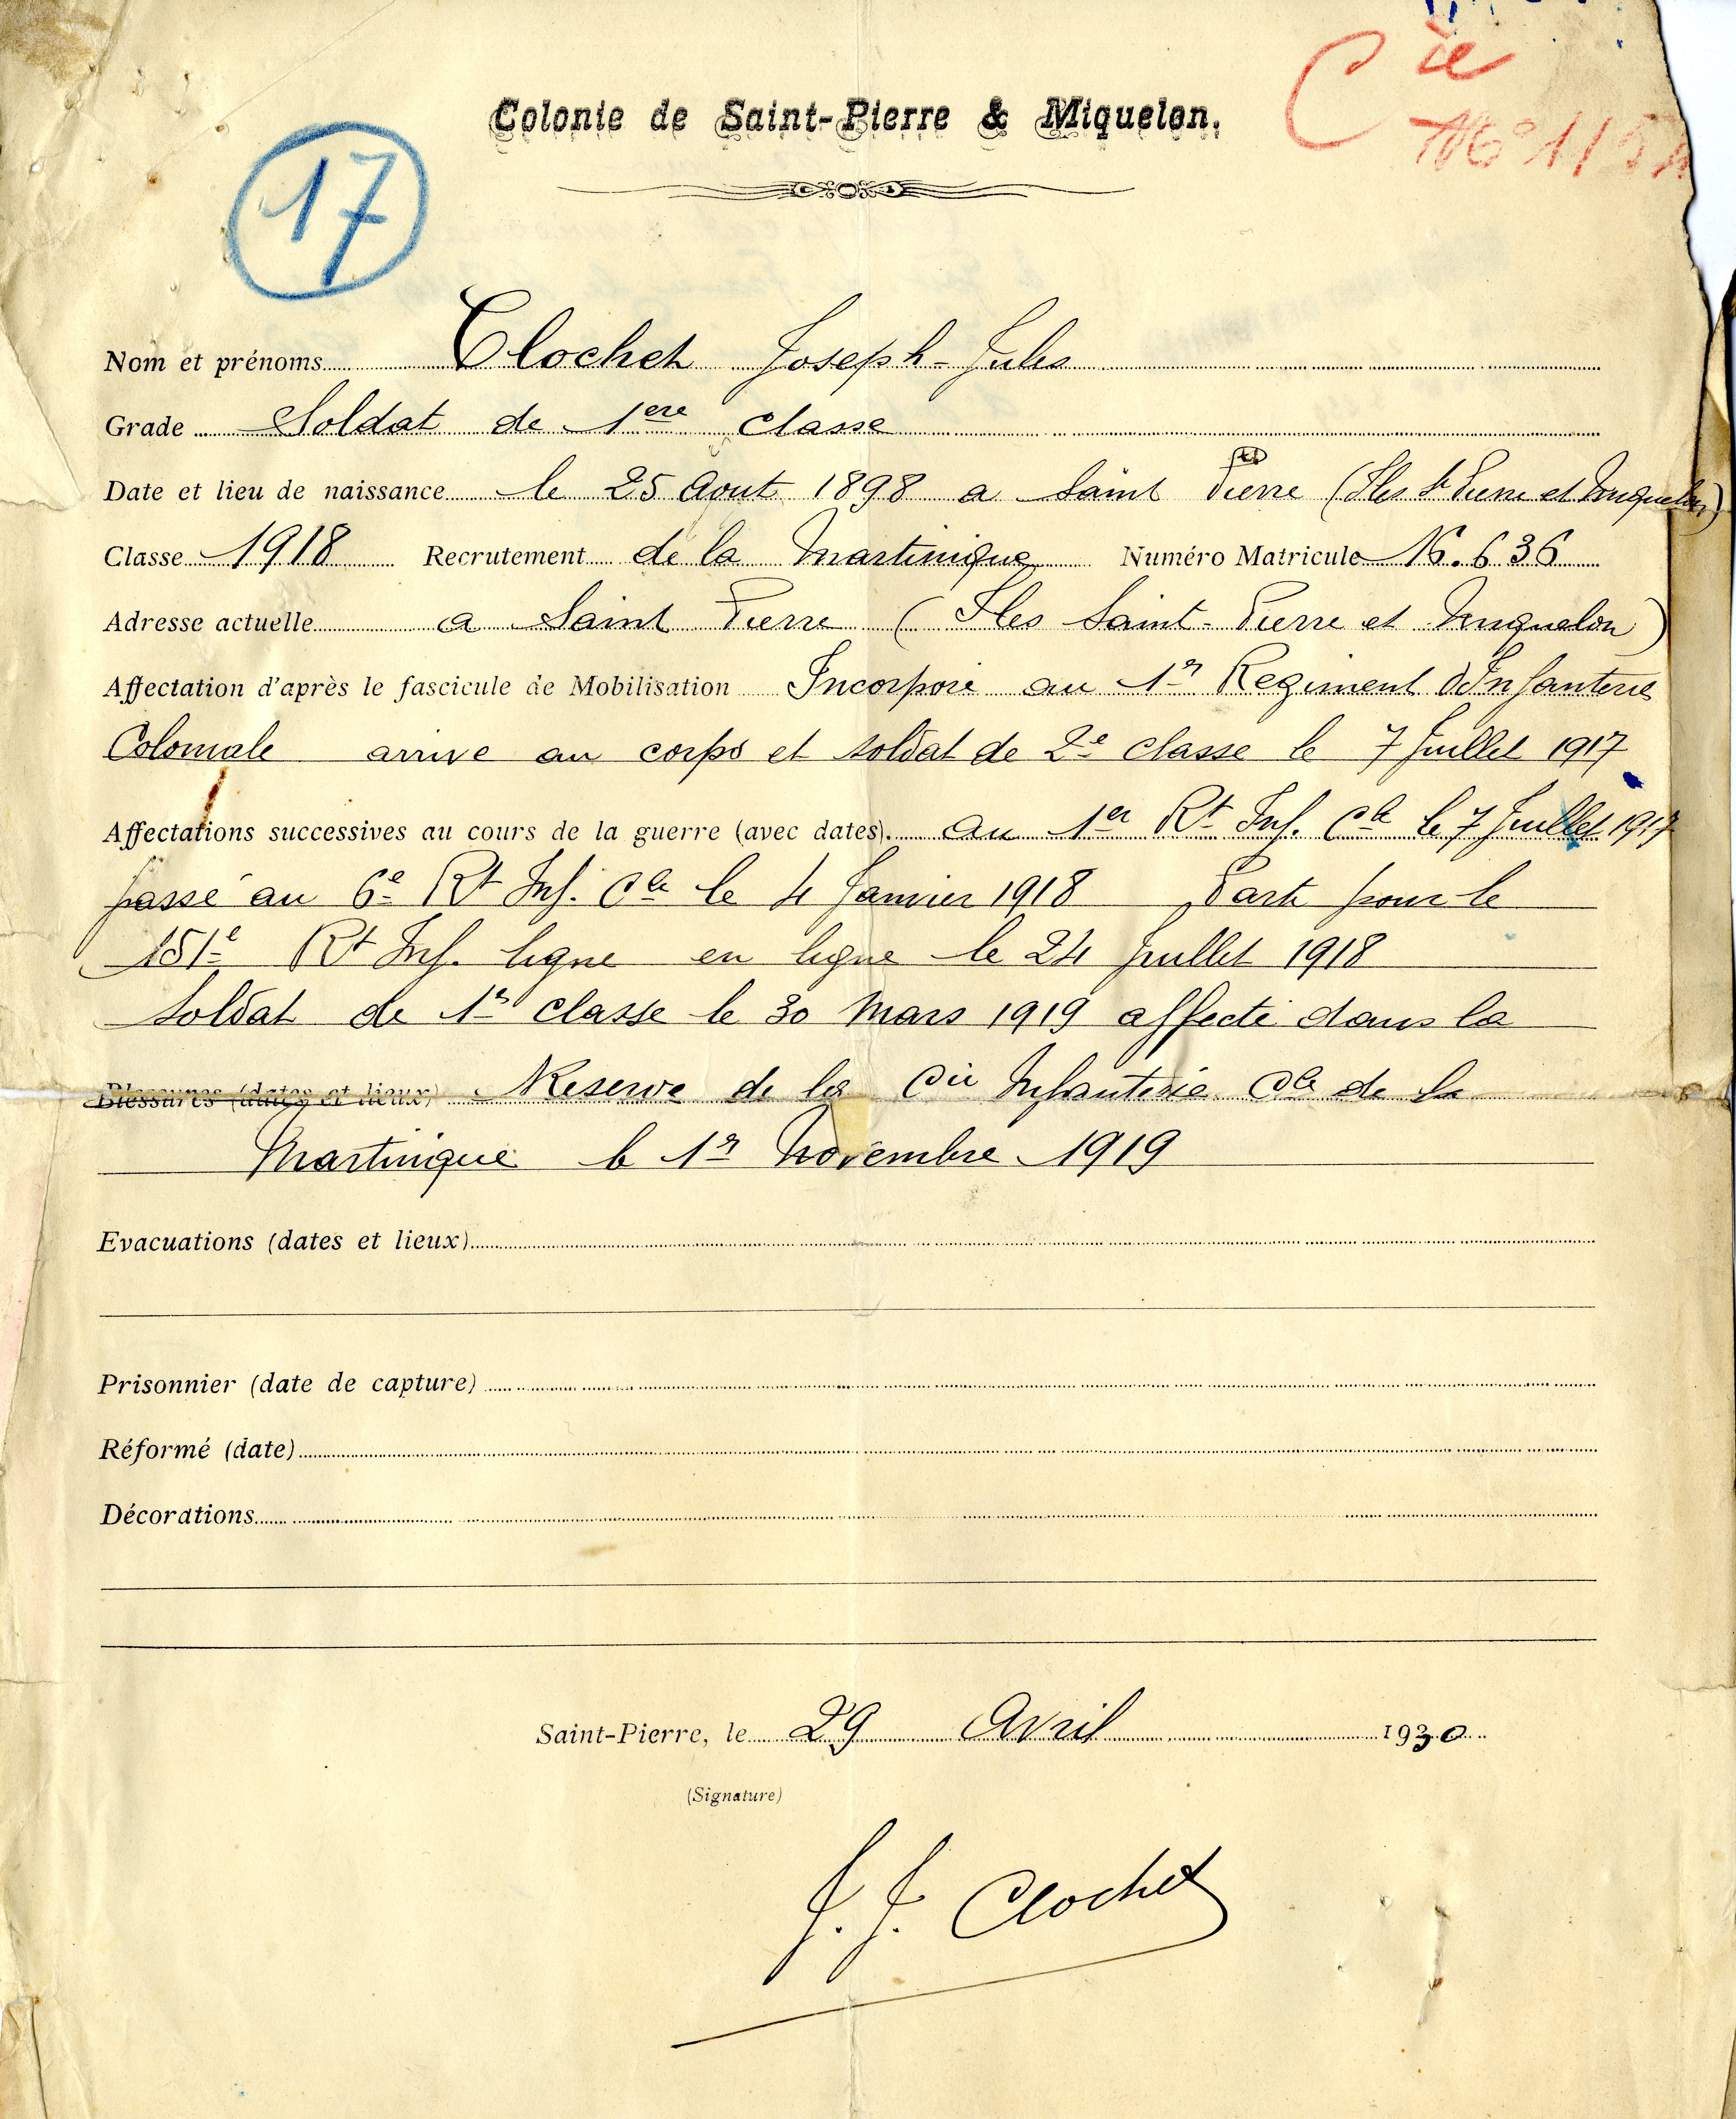 Cie
Colonie de Saint-Pierre & Miquelon.
17
Nom et prénoms Clochet Joseph-Jules
Grade Soldat de 1ere classe
Date et lieu de naissance le 25 Aout 1898 a Saint Pierre (Iles St Pierre et Miquelon)
Classe 1918 Recrutement de la Martinique Numéro Matricule 16.636
Adresse actuelle a Saint Pierre (Iles Saint-Pierre et Miquelon)
Affectation d'après le fascicule de Mobilisation Incorporé au 1er Regiment d'Infanterie
Coloniale arrive au corps et soldat de 2e classe le 7 Juillet 1917
Affectations successives au cours de la guerre (avec dates). Au 1er Rt Inf. Cle le 7 Juillet 1917
passé au 6e Rt Inf. Cle le 4 Janvier 1918 Parti pour le
151e Rt Inf. ligne en ligne le 24 Juillet 1918
Soldat de 1er classe le 30 Mars 1919 affecté dans la
Blessures (dates et lieux) Reserve de la Cie Infanterie Cle de la
Martinique le 1er Novembre 1919
Evacuations (dates et lieux)
Prisonnier (date de capture)
Réformé (date)
Décorations
Saint-Pierre, le 29 Avril 1930
(Signature)
J. J. Clochet